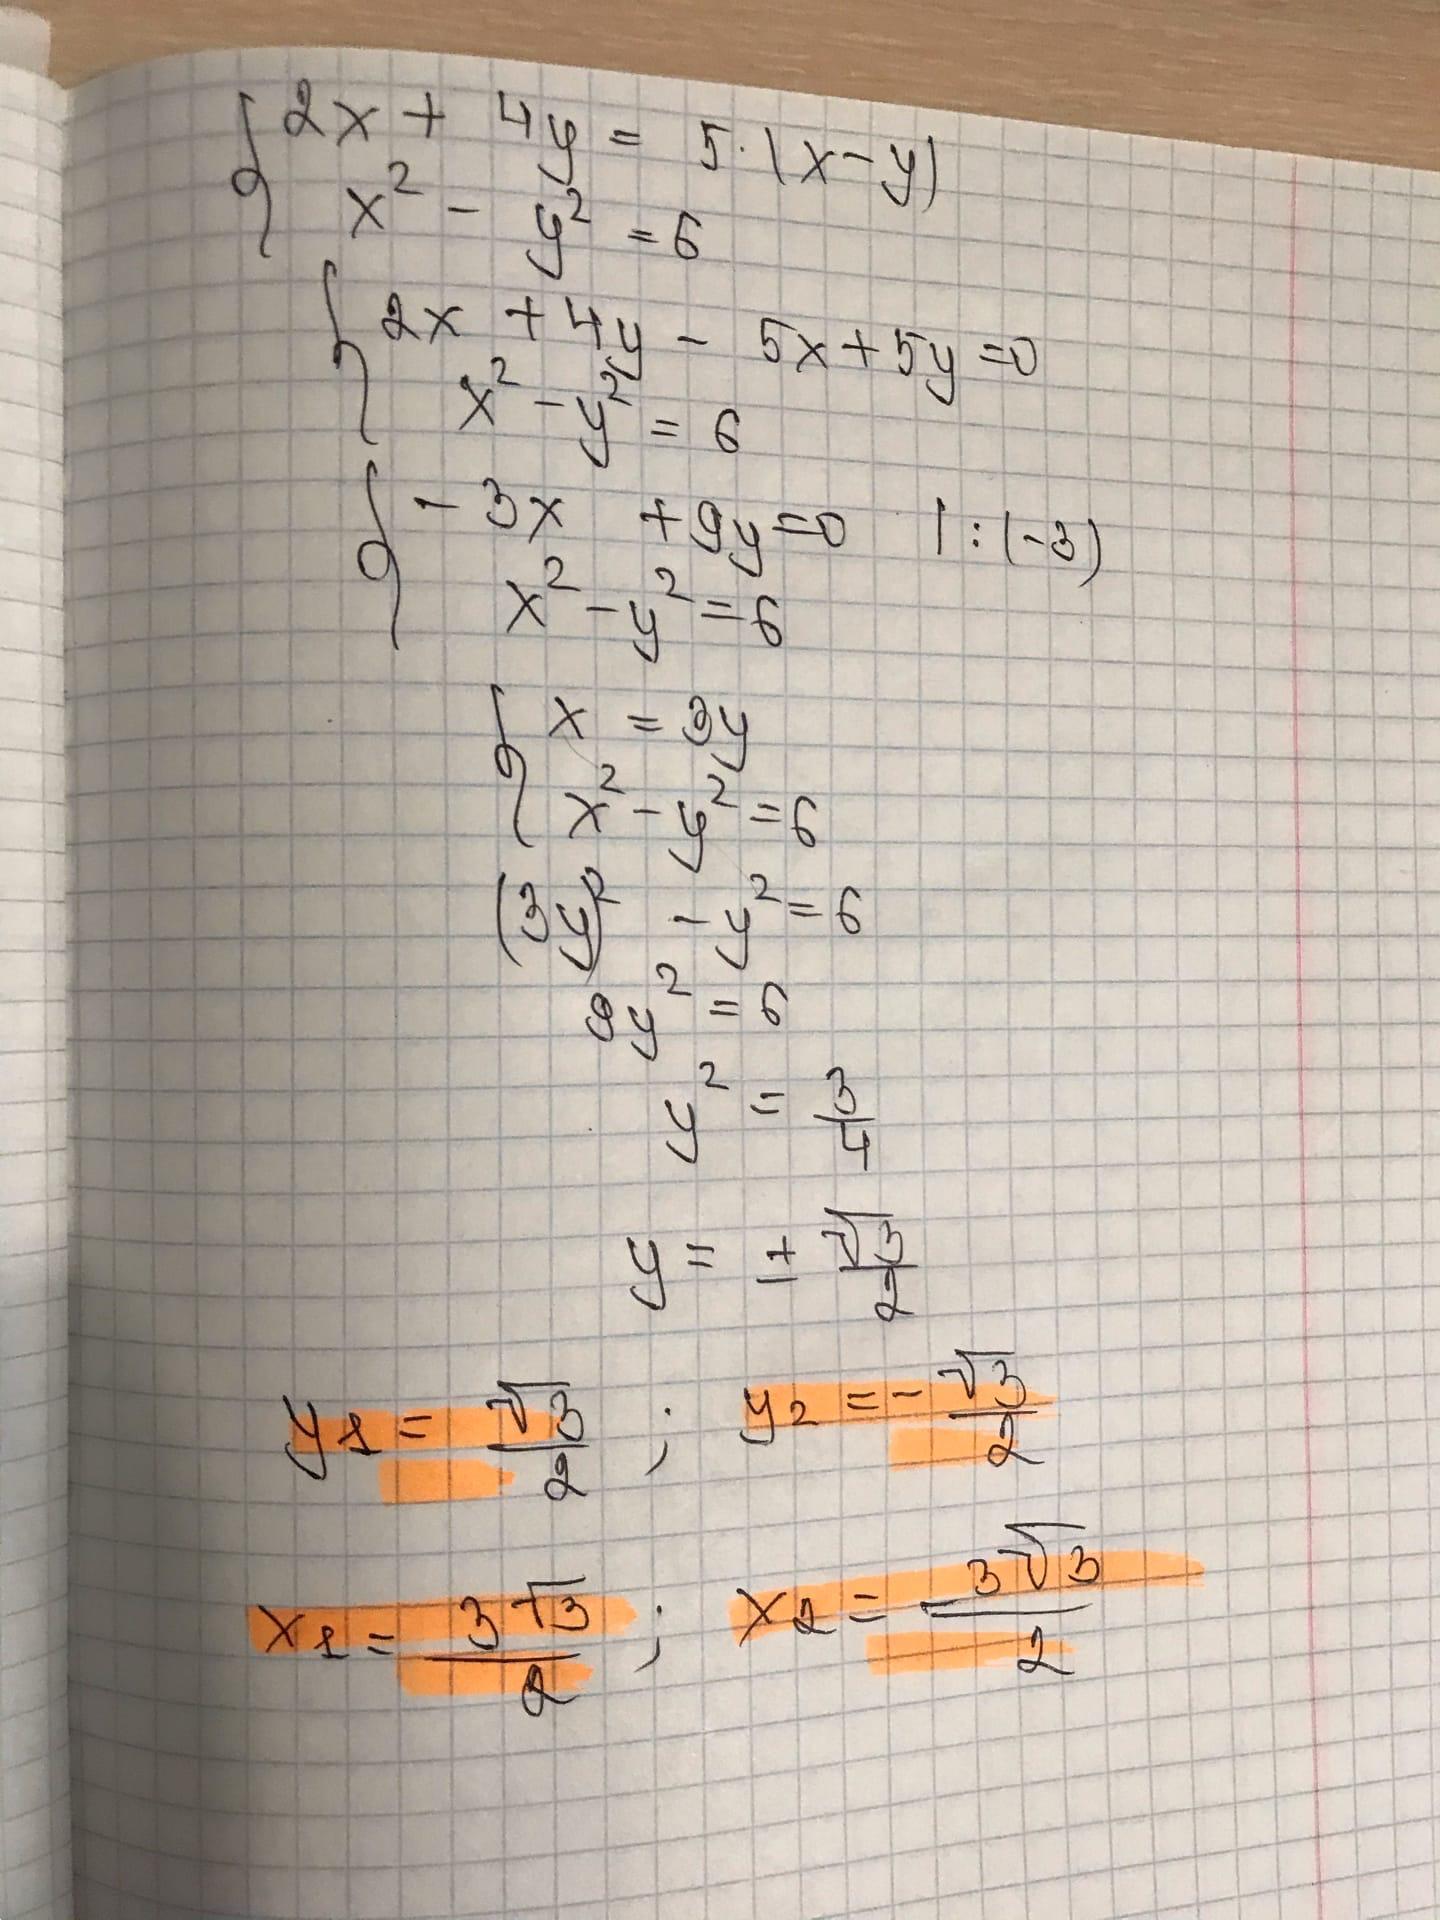 { 2x + 4y = 5·(x-y)
x² - y² = 6
{ 2x + 4y - 5x + 5y = 0
x² - y² = 6
{ -3x + 9y = 0 | : (-3)
x² - y² = 6
{ x = 3y
x² - y² = 6
(3y)² - y² = 6
8y² = 6
y² = 3/4
y = ± √3/2
y₁ = √3/2 ; y₂ = - √3/2
x₁ = 3√3/2 ; x₂ = -3√3/2